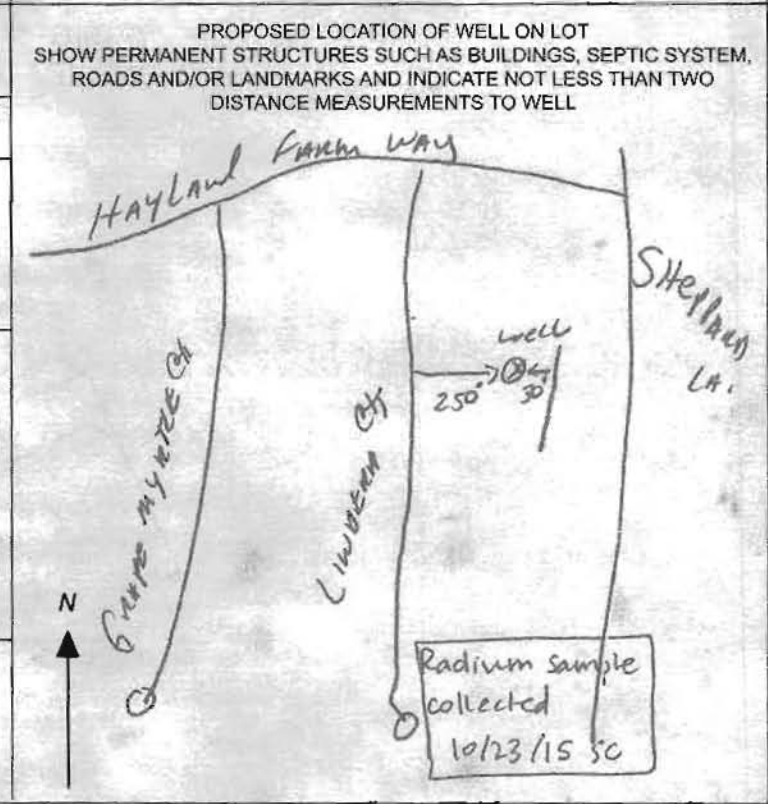 PROPOSED LOCATION OF WELL ON LOT
SHOW PERMANENT STRUCTURES SUCH AS BUILDINGS, SEPTIC SYSTEM,
ROADS AND/OR LANDMARKS AND INDICATE NOT LESS THAN TWO
DISTANCE MEASUREMENTS TO WELL
HAYLAND FARM WAY
SHEPPARD
LA.
well
250'
30'
GRAPE MYRTLE Ct
LINDERA Ct
N
Radium sample
collected
10/23/15 SC